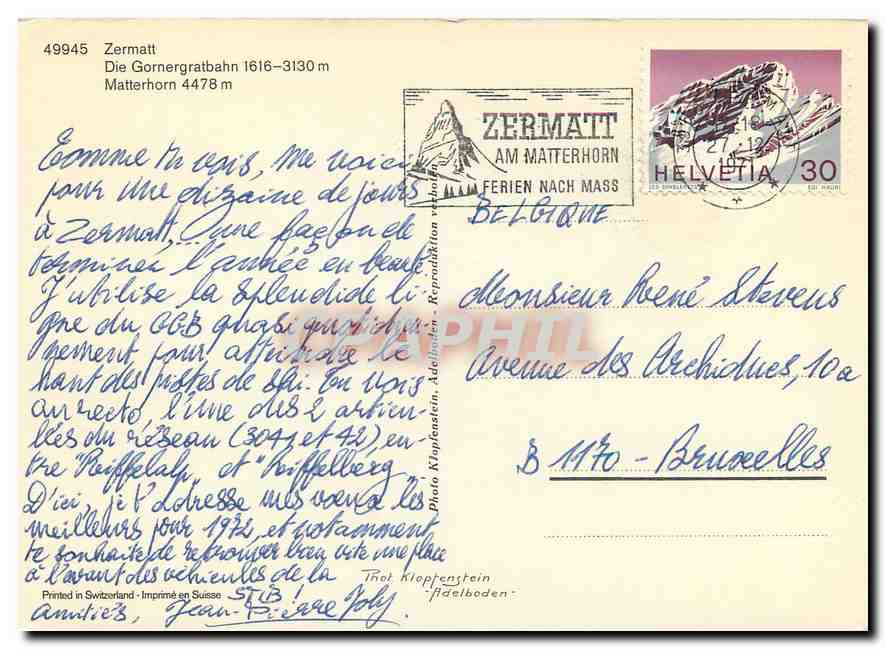 49945 Zermatt
Die Gornergratbahn 1616–3130 m
Matterhorn 4478 m
Comme tu vois, me voici
pour une dizaine de jours
à Zermatt, une façon de
terminer l'année en beauté
J'utilise la splendide li
gne du GGB quasi quotidien-
nement pour atteindre le
haut des pistes de ski. Tu vois
au recto, l'une des 2 articu-
lées du réseau (3041 et 42) en-
tre "Riffelalp et "Riffelberg
D'ici, je t'adresse mes vœux les
meilleurs pour 1972, et notamment
te souhaite de retrouver bien vite une place
à l'avant des véhicules de la
STIB!
Amitiés, Jean-Pierre Joly.
Printed in Switzerland - Imprimé en Suisse
Photo Klopfenstein, Adelboden - Reproduktion verboten
Phot. Klopfenstein
-Adelboden-
ZERMATT
AM MATTERHORN
FERIEN NACH MASS
HELVETIA 30
LES DIABLERETS EDI HAURI
27.12.
BELGIQUE
Monsieur René Stevens
Avenue des Archiducs, 10a
B 1170 - Bruxelles
CPAPHIL